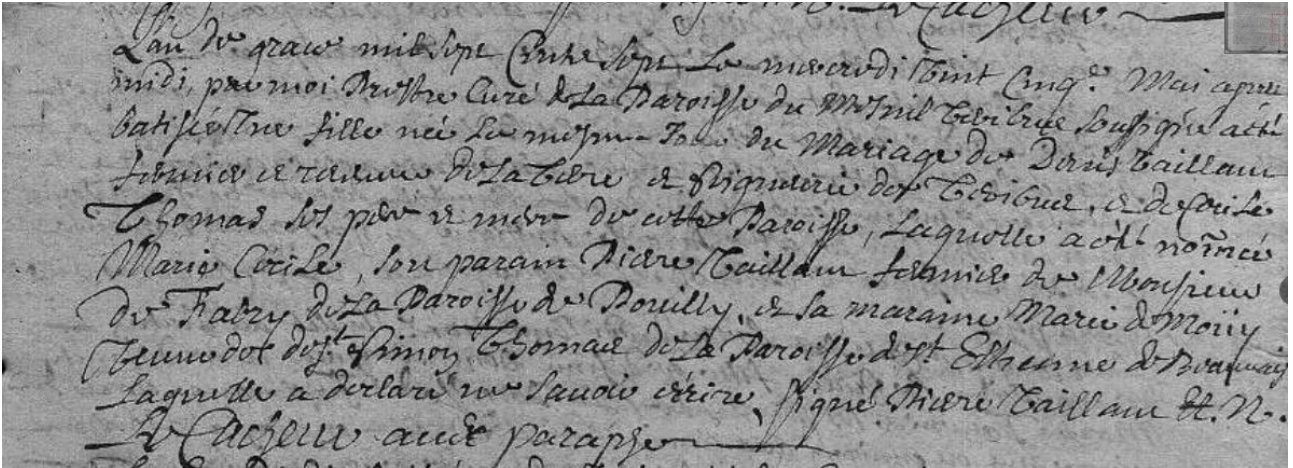 Le Cacheux
L'an de grace mil sept cents sept le mercredi vint cinq.e Mai apres
midi, par moi Prestre Curé de La Paroisse du Mesnil Theribus soussigné a été
batisée une fille née le mesme jour du Mariage de Denis Vaillant
fermier et receveur de la terre et signeurie de Theribus, et de Cecile
Thomas ses pere et mere de cette Paroisse, laquelle a été nommée
Marie Cecile, son parain Pierre Vaillant fermier de Monsieur
de Fabry de la Paroisse de Pouilly, et sa maraine Marie de Moüy
veuve de deft Simon Thomas de la Paroisse de St Esthienne de Beauvais
laquelle a declaré ne savoir écrire, signé Pierre Vaillant et N.
Le Cacheux avec paraphe